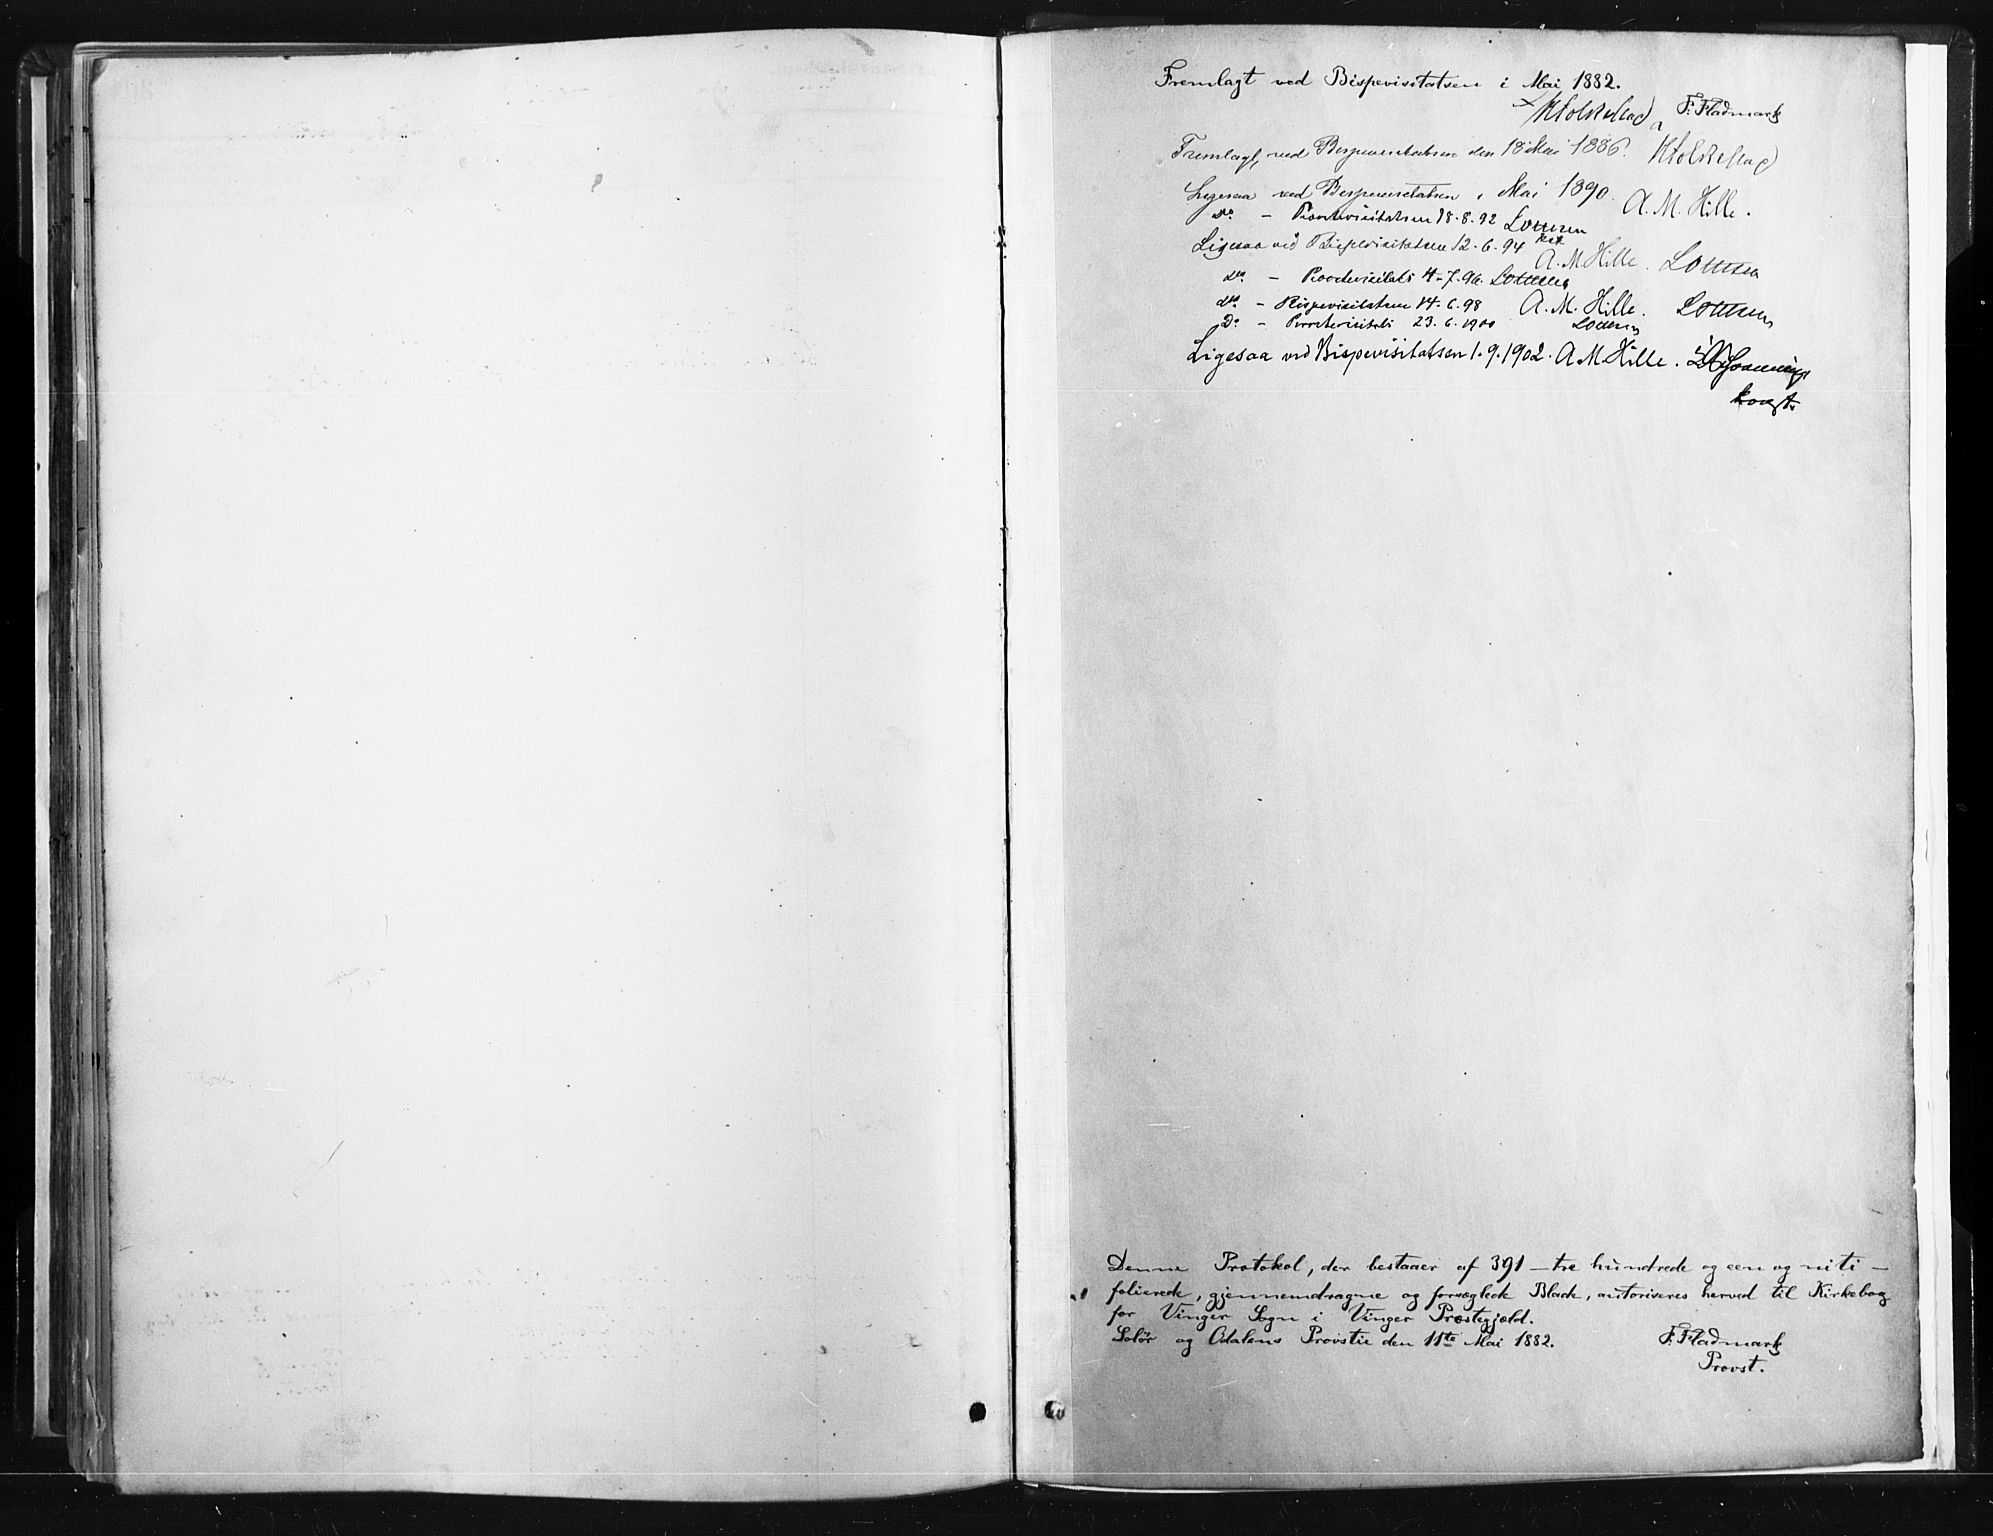 Fremlagt ved Bispevisitatsen i Mai 1882.
F. Fladmark
Fremlagt, ved Bispevisitatsen den 18 Mai 1886.
Ligesaa ved Bispevisitatsen i Mai 1890. A. M. Hille.
do - Provstevisitatsen 18.8.92
Ligesaa ved Bispevisitatsen 12.6.94 A. M. Hille.
do - Provstevisitats 4-7-96.
do - Bispevisitatsen 14.6.98 A. M. Hille.
Do - Provstevisitats 23.6.1900
Ligesaa ved Bispevisitatsen 1.9.1902. A M Hille.
Denne Protokol, der bestaaer af 391 - tre hundrede og een og niti -
folierede, gjennemdragne og forseglede Blade, autoriseres herved til Kirkebog
for Vinger Sogn i Vinger Præstegjæld.
Solør og Odalens Provstie den 11te Mai 1882. F. Fladmark
Provst.